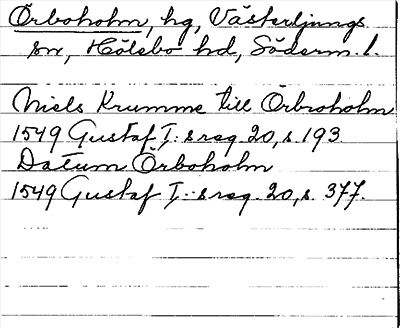 Örboholm, hg, Västerljungs
sn, Hölebo hd, Söderm. l.
Niels Krumme till Örbroholm
1549 Gustaf I:s reg. 20, s. 193.
Datum Örboholm
1549 Gustaf I:s reg. 20, s. 377.